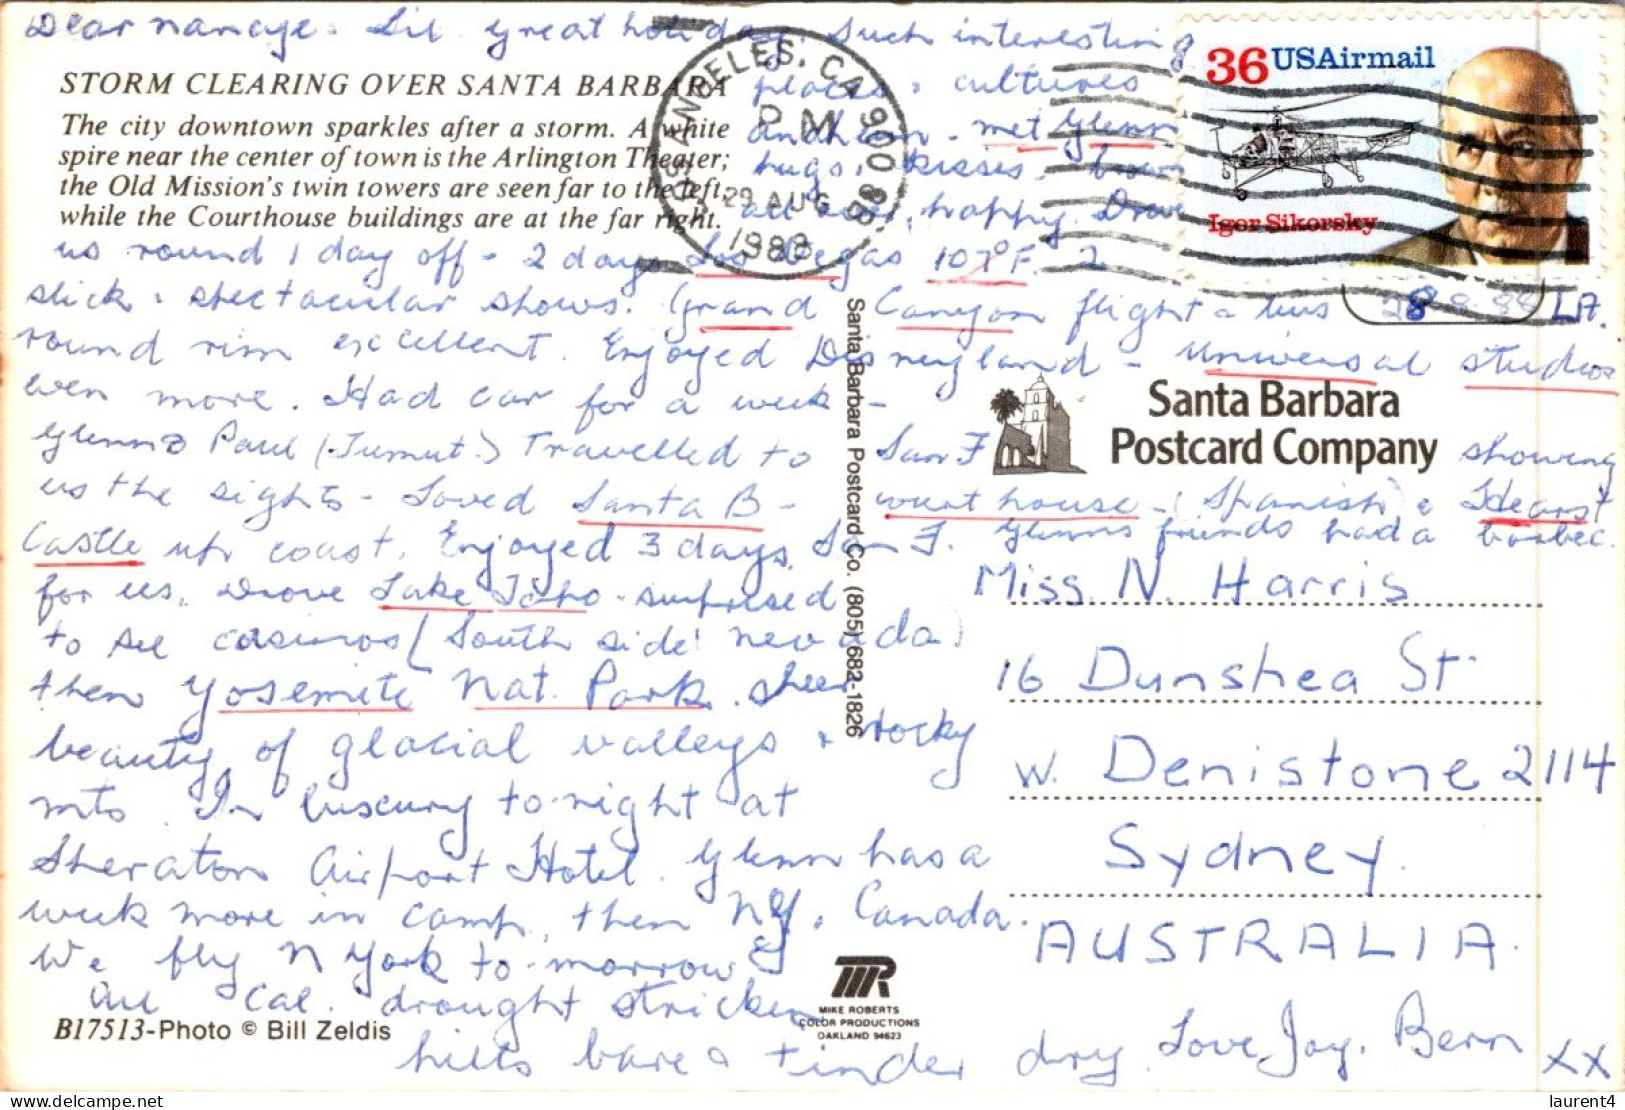 Dear Nancye. Sil great holiday. Such interesting
places & cultures
STORM CLEARING OVER SANTA BARBARA
The city downtown sparkles after a storm. A white
spire near the center of town is the Arlington Theater;
the Old Mission's twin towers are seen far to the left,
while the Courthouse buildings are at the far right.
Anaheim - met Glenn
hugs, kisses, brown
all over, happy. Drove
LOS ANGELES, CA 900 88
PM
29 AUG
1988
36 USAirmail
Igor Sikorsky
us round 1 day off - 2 days Los Vegas 107°F. 2
slick & spectacular shows. Grand Canyon flight & bus
28 8 88 LA.
round rim excellent. Enjoyed Disneyland - Universal studios
even more. Had car for a week -
Glenn & Paul (Tumut.) Travelled to San F showing
us the sights - Loved Santa B - court house (Spanish) & Hearst
Castle up coast. Enjoyed 3 days San F. Glenns friends had a barbec.
for us. Drove Lake Taho - surprised
to see casinos (South side Nevada)
then Yosemite Nat. Park. Sheer
beauty of glacial valleys & rocky
mts. In luxury to-night at
Sheraton Airport Hotel. Glenn has a
week more in camp, then NY & Canada.
We fly N York to-morrow
Cal. drought stricken
hills bare & tinder dry. Love, Joy, Bern xx
Santa Barbara
Postcard Company
Santa Barbara Postcard Co. (805) 682-1826
Miss N. Harris
16 Dunshea St
W. Denistone 2114
Sydney.
AUSTRALIA.
MIKE ROBERTS
COLOR PRODUCTIONS
OAKLAND 94623
B17513-Photo © Bill Zeldis
delcampe.net
laurent4